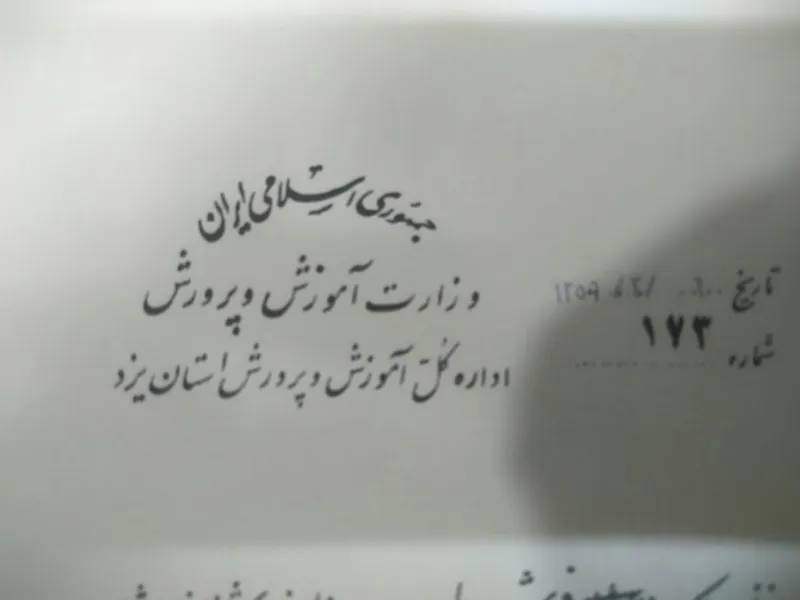 جمهوری اسلامی ایران
وزارت آموزش و پرورش
اداره کل آموزش و پرورش استان یزد
تاریخ
شماره ۱۷۳